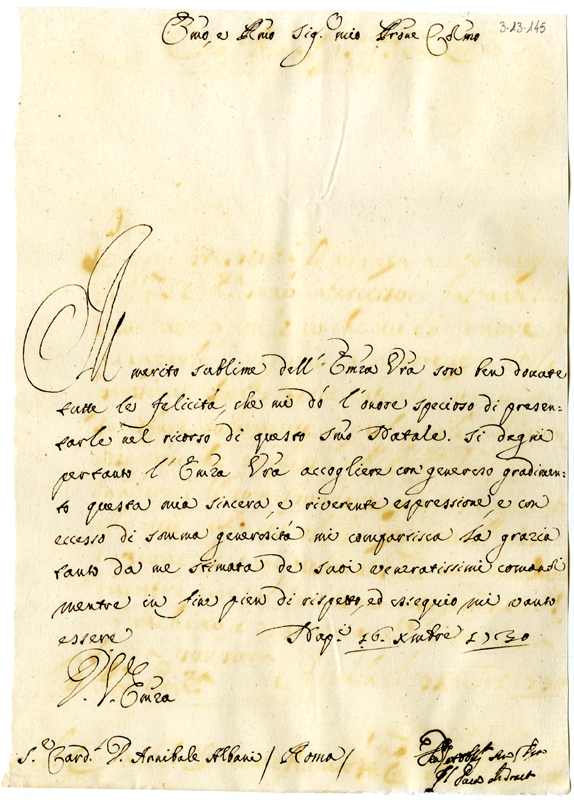 Emo, e Rmo Sig.r mio Prone Colmo
3-13-145
Al merito sublime dell' Emza Vra son ben dovute
tutte le felicità che mi dò l'onore specioso di presen:
tarle nel ricorso di questo Smo Natale. Si degni
pertanto l'Emza Vra accogliere con generoso gradimen:
to questa mia sincera, e riverente espressione, e con
eccesso di somma generosità mi compartisca la grazia
tanto da me stimata de suoi veneratissimi comandi
mentre in fine pien di rispetto, ed essequio mi vanto
essere Nap.i 16. Xmbre 1730
D. V. Emza
S.r Card.l D. Annibale Albani / Roma /